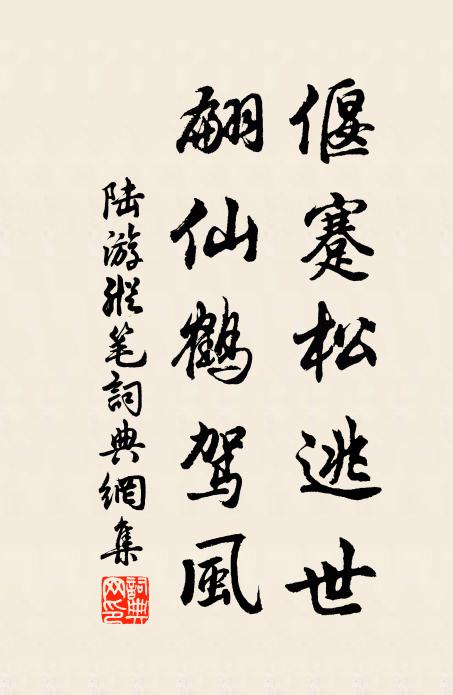 偃蹇松逃世
翩仙鶴驾風
陆游縱笔詞典網集
詞典网印